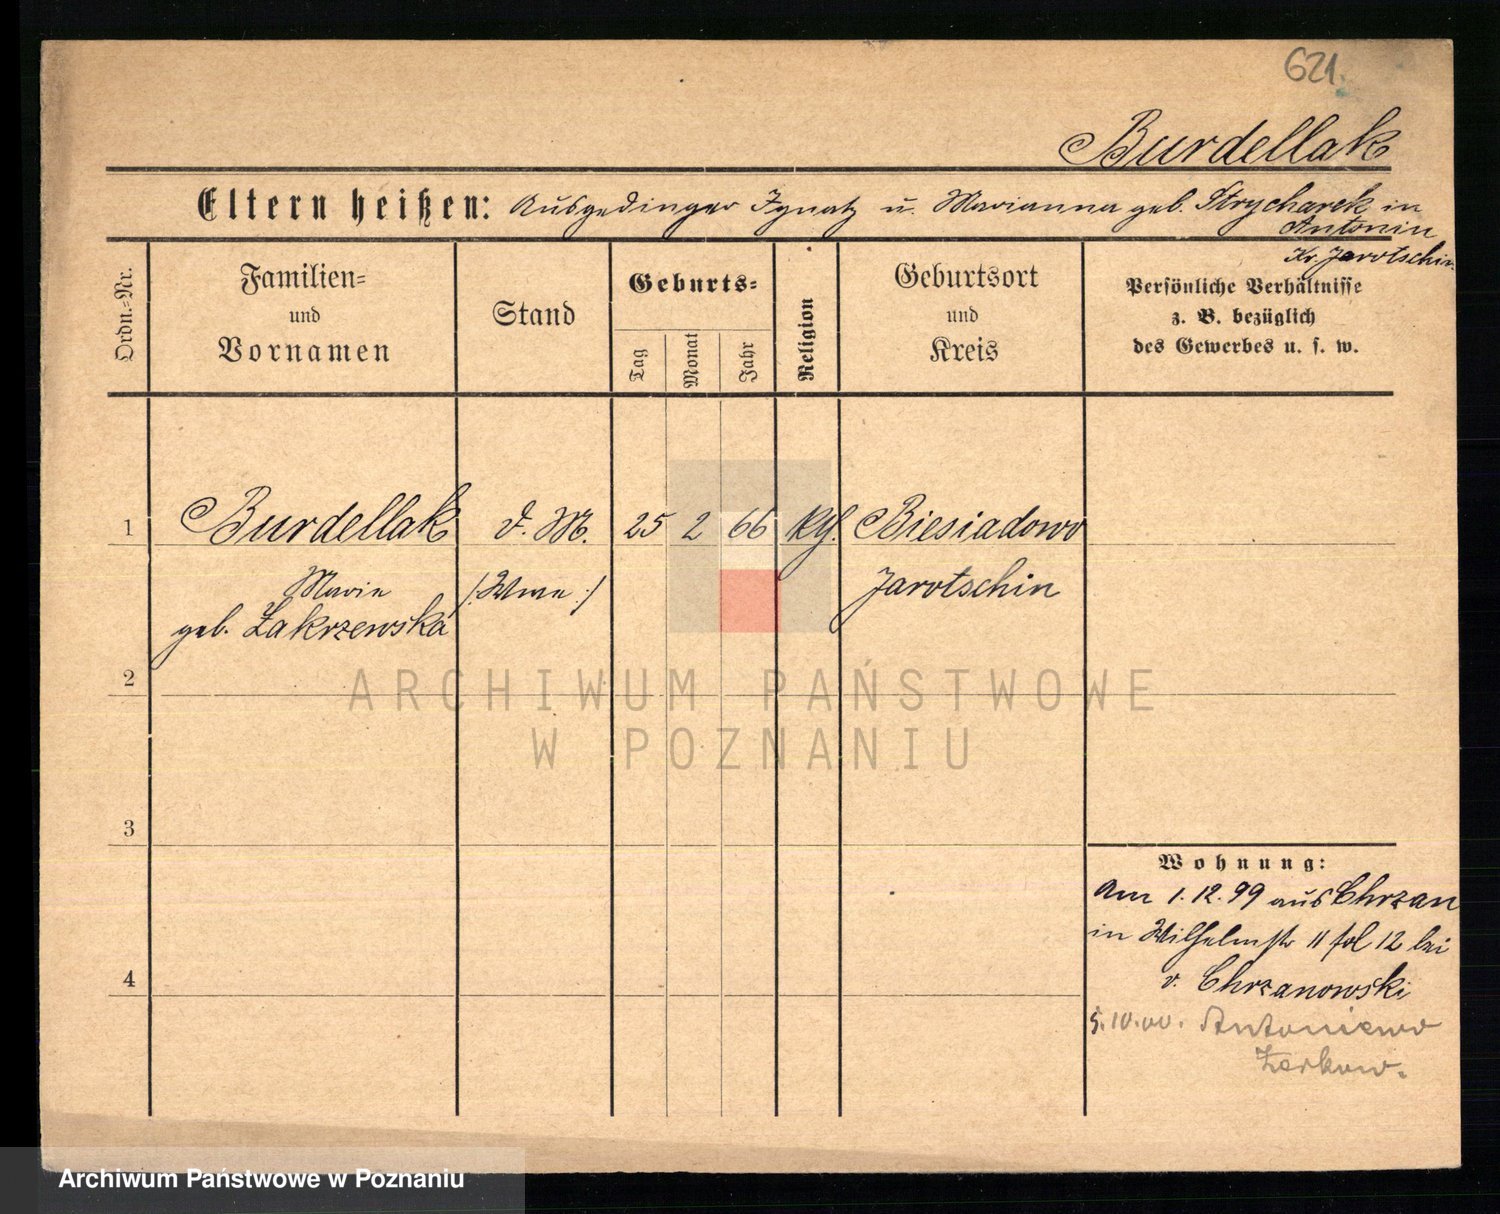 621.
Burdellak
Eltern heißen: Ausgedinger Ignatz u. Marianna geb. Strycharek in
Antonin
Kr. Jarotschin
Ordn.-Nr.
Familien-
und
Vornamen
Stand
Geburts-
Tag
Monat
Jahr
Religion
Geburtsort
und
Kreis
Persönliche Verhältnisse
z. B. bezüglich
des Gewerbes u. s. w.
1 Burdellak d. M. 25 2 66 kth. Biesiadowo
Marie /: Wwe :/ Jarotschin
geb. Zakrzewska
2
ARCHIWUM PAŃSTWOWE
W POZNANIU
3
Wohnung:
Am 1.12.99 aus Chrzan
in Wilhelmstr 11 fol 12 bei
v. Chrzanowski
4
5.10.00. Antoniewo
Zerkow.
Archiwum Państwowe w Poznaniu